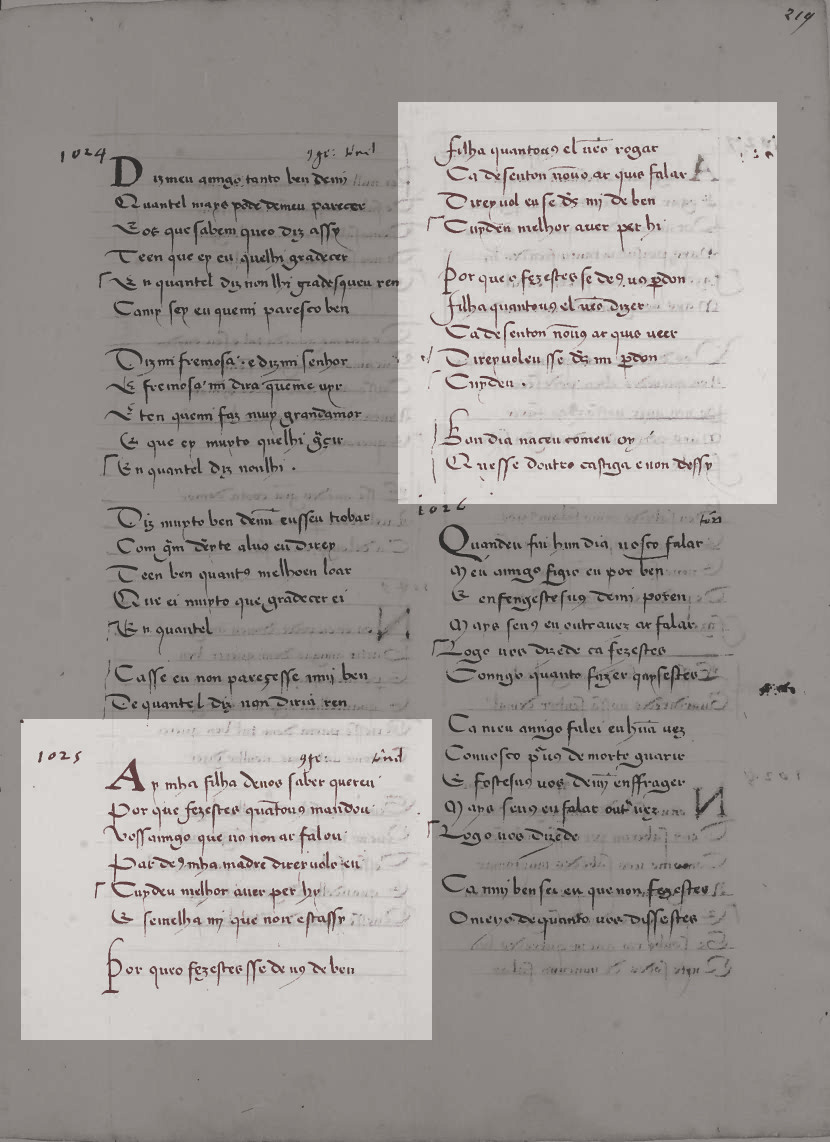 219
1024
Dizmeu amigo tanto ben demi
Quantel mays pode demeu pareçer
Eos que sabem queo diz assy
Teen que ey eu quelhi gradeçer
En quantel diz non lhi gradesqueu ren
Camy sey eu quemi paresco ben
Dizmi fremosa e dizmi senhor
E fremosa mi dira queme uyr
E ten quemi faz muy grandamor
E que ey muyto quelhi
En quantel diz nonlhi
Diz muyto ben demi eusseu trobar
Com
Teen ben quantos melhoen loar
Que ei muyto que gradeçer ei
En quantel
Casse eu non pareçesse mui ben
De quantel diz non diria ren
1025
Ay mha filha deuos saber quereu
Por que fezestes quātouꝯ mandou
Vossamigo que uo non ar falou
Par deꝯ mha madre direyuolo eu
Cuydeu melhor auer per hy
E semelha mj que non estassy
Por queo fezestes sse deꝯ uꝯ de ben
filha quantouꝯ el ueo rogar
Ca desenton nouo ar quis falar
Direy uol eu se dꝯ mj de ben
Cuydeu melhor auer per hi
Por que o fezestes se deꝯ uꝯ perdon
filha quantouꝯ el ueo dizer
Ca desenton ar quis ueer
Direyuoleu sse dꝯ mi perdon
Cuydeu
Bon dia naçeu comeu oy
Quesse doutro castiga e non dessy
1026
Quandeu fui hun dia uosco falar
Meu amigo figio eu por ben
E enfengestesuꝯ demi poren
Mays seuꝯ eu outra uez ar falar
Logo uos dizede ca fezestes
Comigo quanto fazer quysestes
Ca meu amigo falei eu hūa uez
Conuosco de morte guarir
E fostesuꝯ uos demj enffenger
Mays seuꝯ eu falar uez
Logo uos dizede
Ca mui ben sei eu que non fezestes
O meyo de quanto uos dissestes